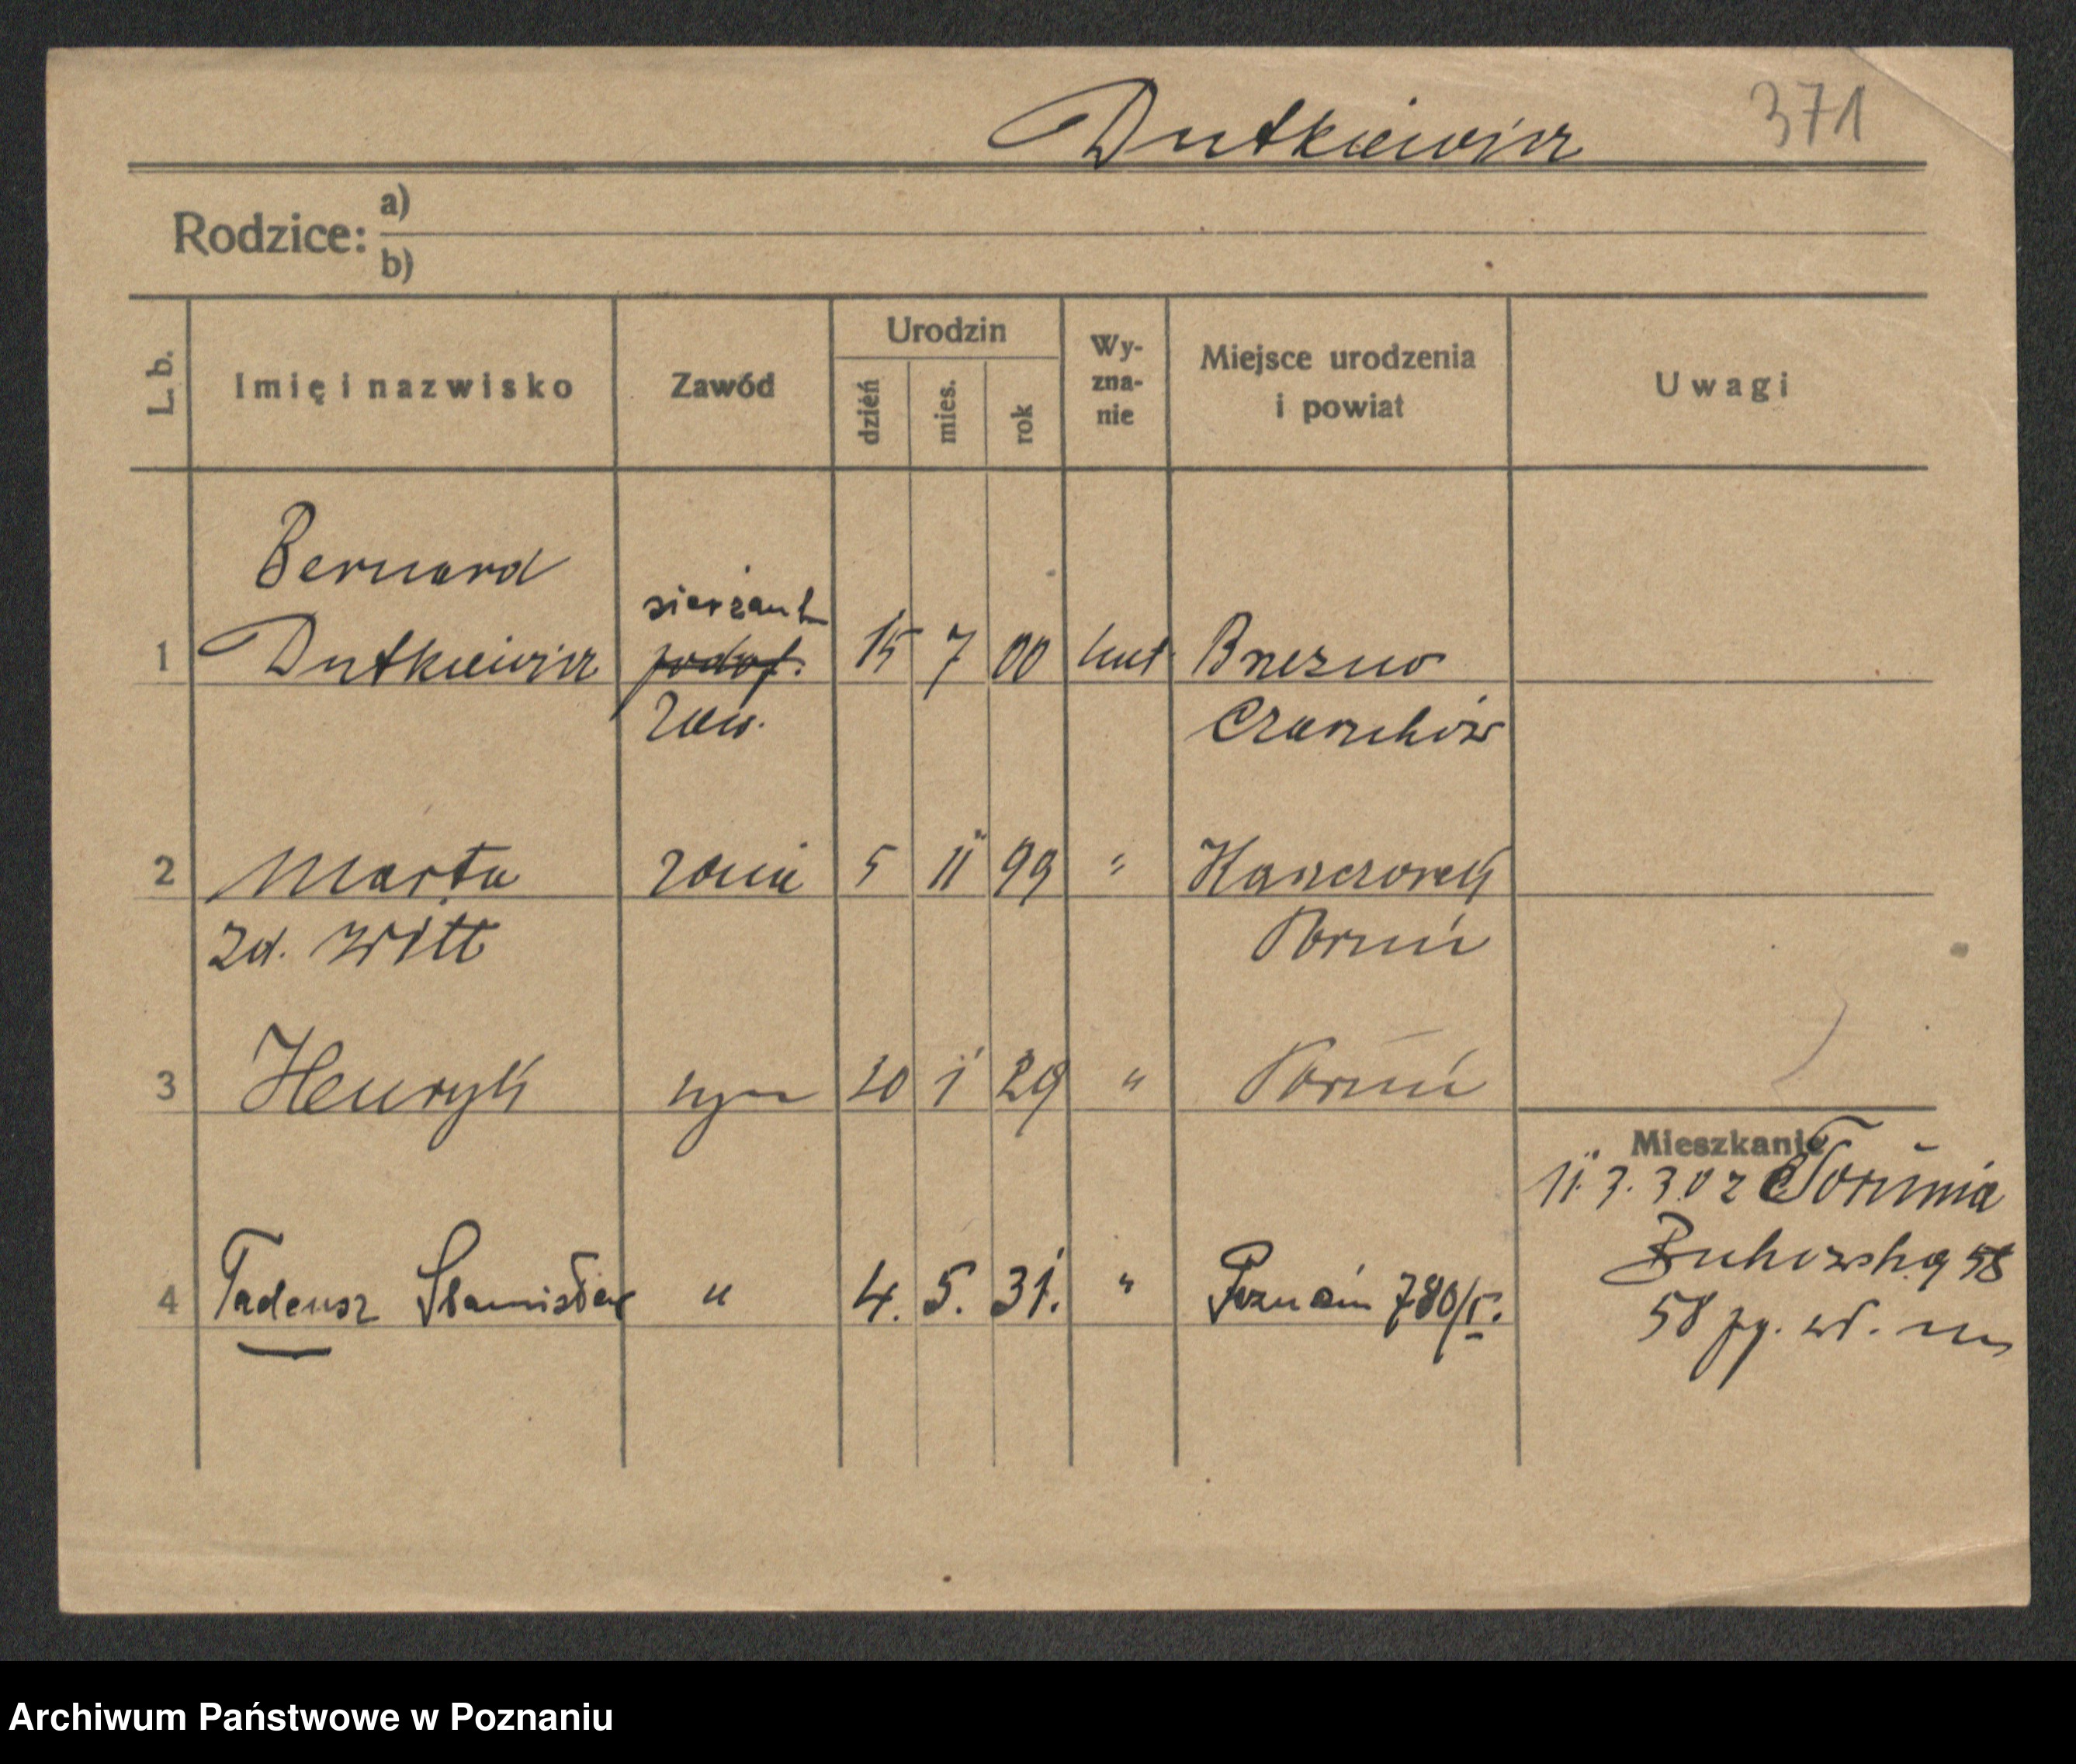 Dutkiewicz 371
Rodzice: a)
b)
L. b. Imię i nazwisko Zawód Urodzin dzień mies. rok Wy-zna-nie Miejsce urodzenia i powiat Uwagi
Bernard
sierżant
1 Dutkiewicz podof. 15 7 00 Brzezno
zaw. Czarnków
2 Marta żona 5 11 99 " Kaszczorek
zd. Witt Toruń
3 Henryk syn 20 1 29 " Toruń
Mieszkanie
11. 3. 30 z Torunia
Bukowska 58
4 Tadeusz Stanisław " 4. 5. 31. " Poznań 780/V.
58 pp.
Archiwum Państwowe w Poznaniu